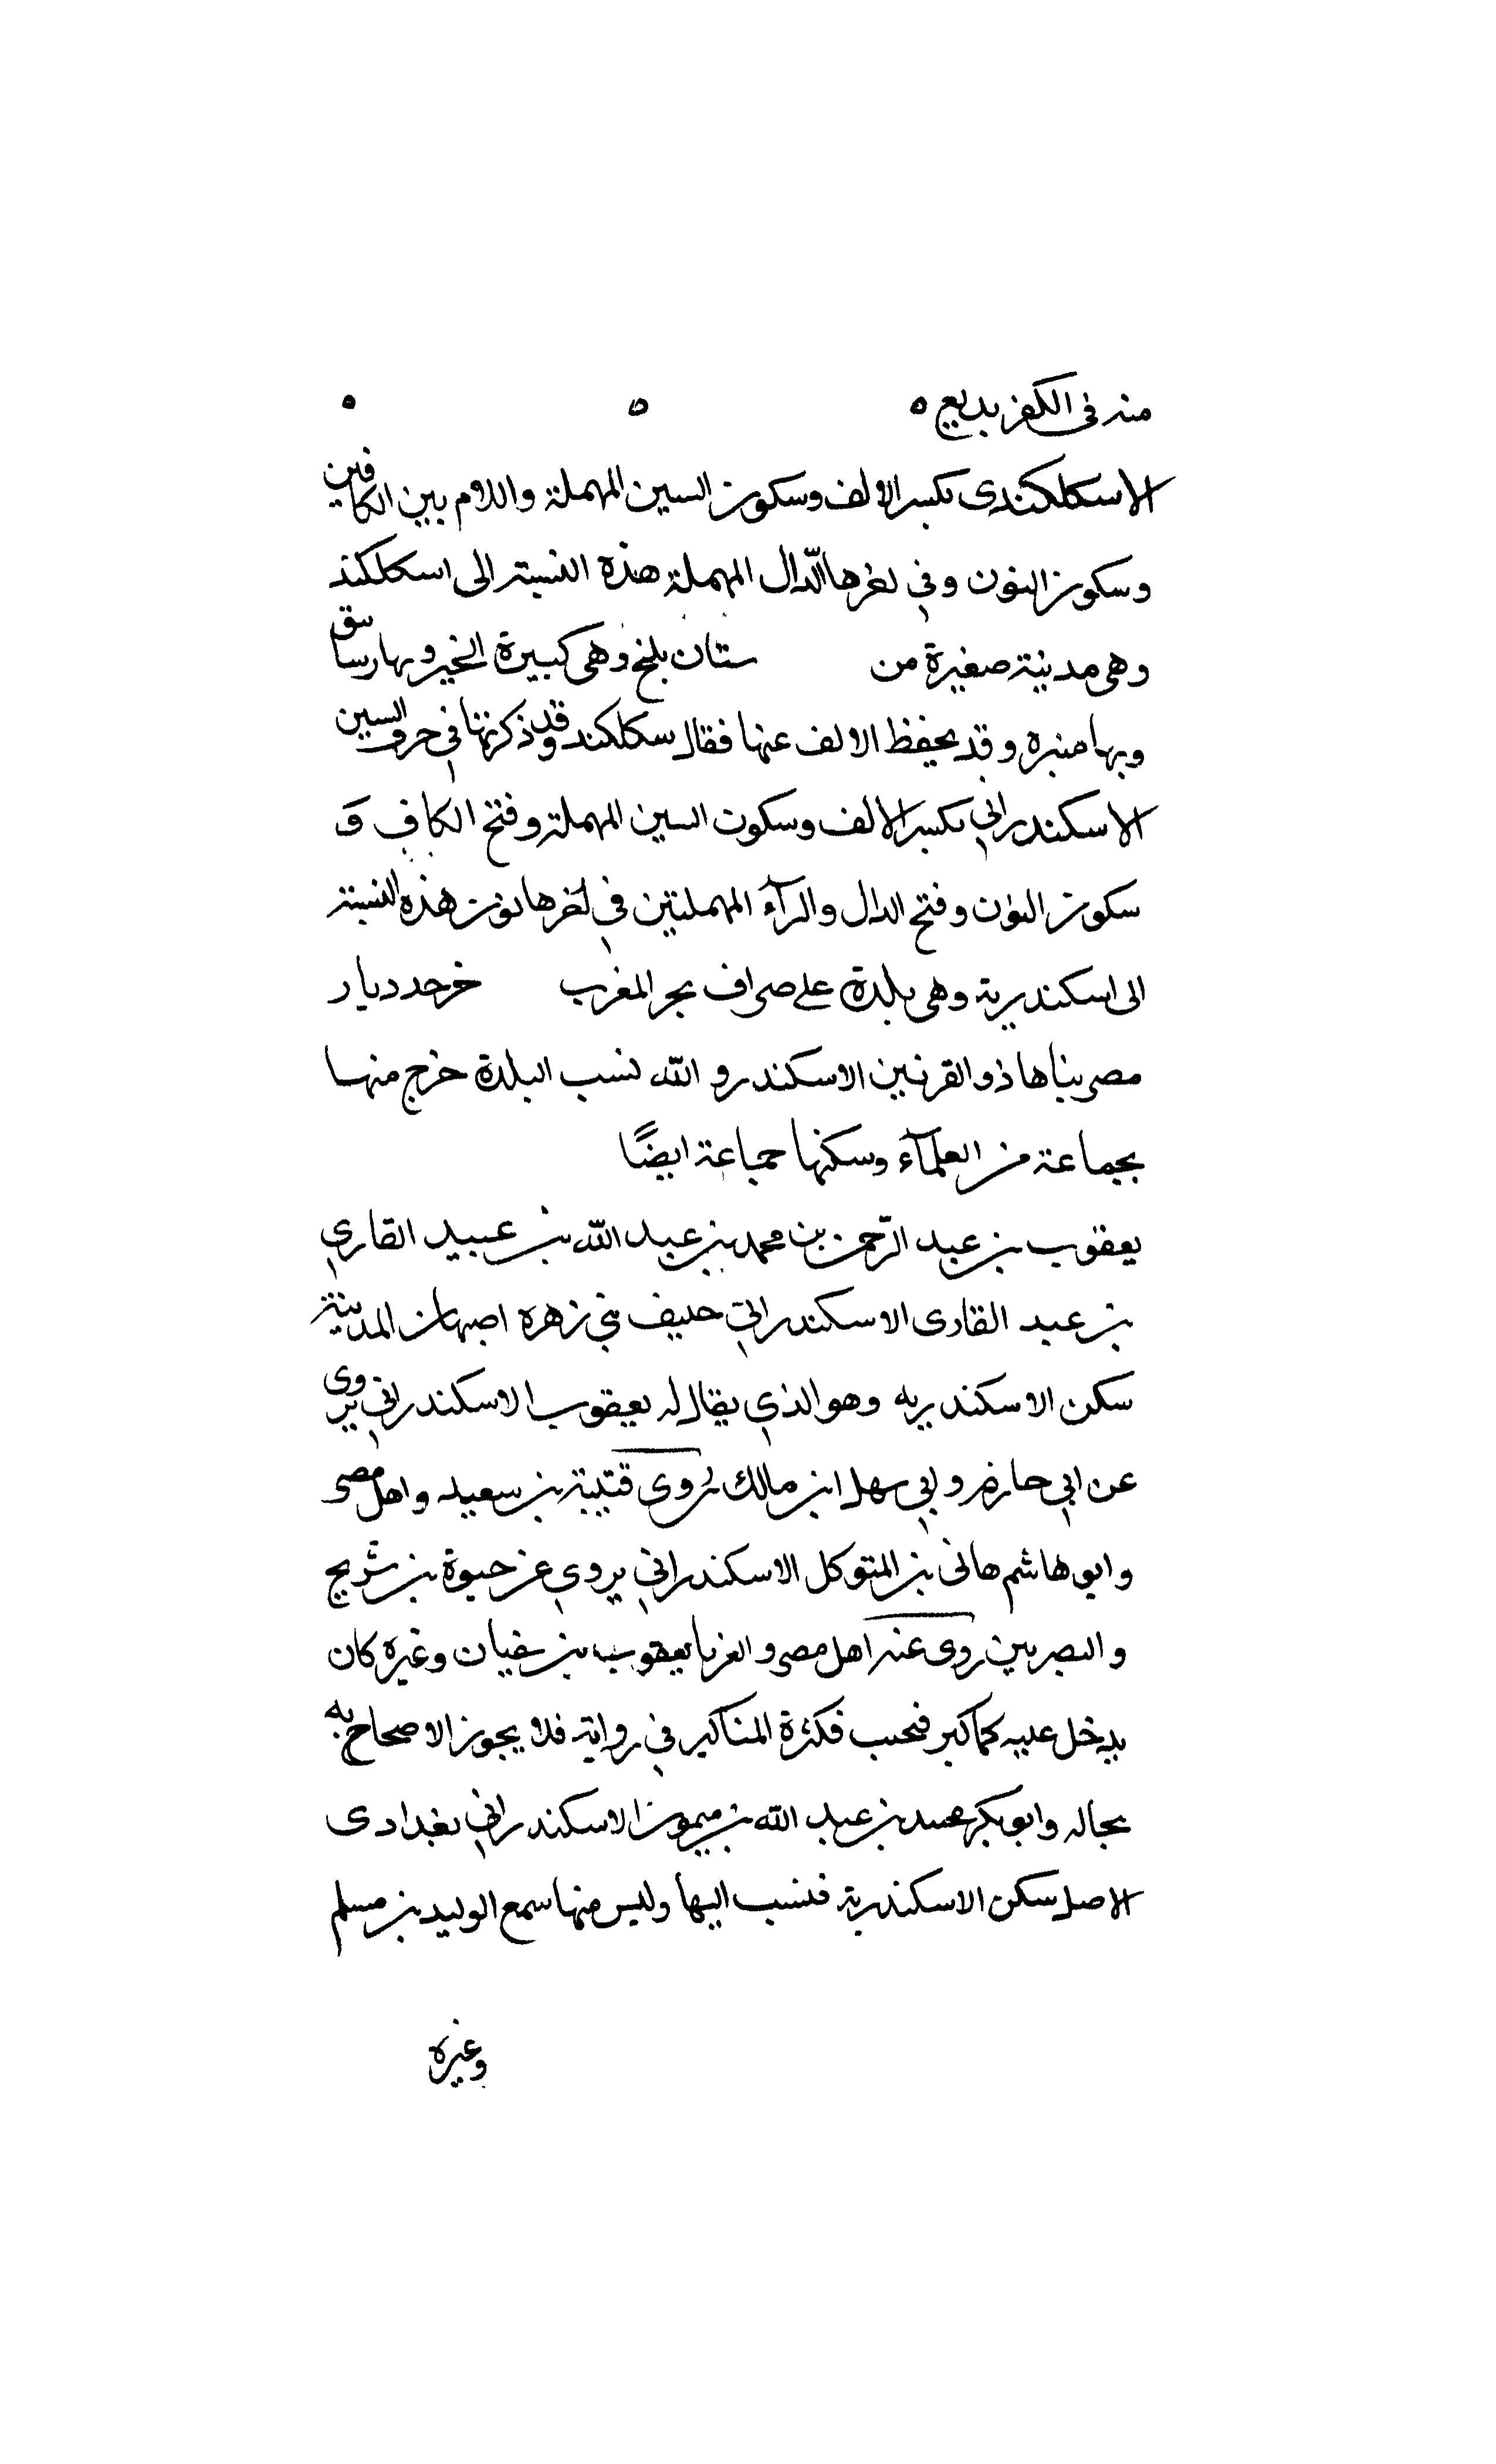 منه في الكفر بديع ه ه ه
الاسكلكندى بكسر الالف وسكون السين المهملة واللام بين الكافين
وسكون النون وفي اخرها الدّال المهملة هذه النسبة الى اسكلكند
وهى مدينة صغيرة من ستان بلخ وهى كبيرة الخير وبها رساتيق
وبها منبره وقد يحفظ الالف عنها فقال سكلكند وقد ذكرتها في حرف السين
الاسكندراني بكسر الالف وسكون السين المهملة وفتح الكاف و
سكون النون وفتح الدال والرآء المهملتين في اخرها نون هذه النسبة
الى اسكندرية وهى بلدة على صراف بحر المغرب خرحد ديار
مصر بناها ذو القرنين الاسكندر و الله نسب البلدة خرج منها
بجماعة من العلمآء وسكنها جماعة ايضًا
يعقوب بن عبد الرّحمن بن محمد بن عبد الله بن عبيد القاري
بن عبد القادى الاسكندراني حليف بني زهرة اصبهان المدينة
سكن الاسكندريه وهو الذي يقال له يعقوب الاسكندراني يروى
عن ابي حازم وابي سهل ابن مالك روى قتيبة بن سعيد واهل مصر
وابو هاشم هانى بن المتوكل الاسكندراني يروي عن حيوة بن شريح
والبصريين روى عنه اهل مصر والغربا يعقوب بن سفيان وغيره كان
يدخل عليه كما كبر فحسب فكثرة المناكير في رواية فلا يجوز الاصحاح به
بحاله وابو بكر محمد بن عبد الله بن ميمون الاسكندراني بغدادى
الاصل سكن الاسكندرية فنسب اليها وليس منها سمع الوليد بن مسلم
وغيره